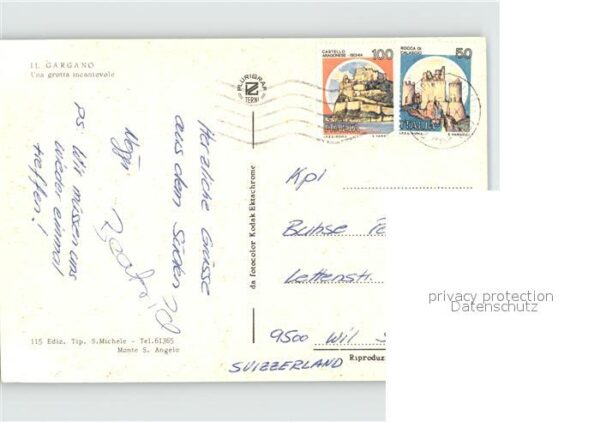 IL GARGANO
Una grotta incantevole
PLURIGRAF
TERNI
CASTELLO
ARAGONESE - ISCHIA
100
ITALIA
ROCCA DI
CALASCIO
50
ITALIA
Herzliche Grüsse
aus dem Süden
PS. Wir müssen uns
wieder einmal
treffen!
da fotocolor Kodak Ektachrome
Kpl
Buhse
Lettenstr.
9500 Wil
SVIZZERLAND
115 Ediz. Tip. S.Michele - Tel.61365
Monte S. Angelo
privacy protection
Datenschutz